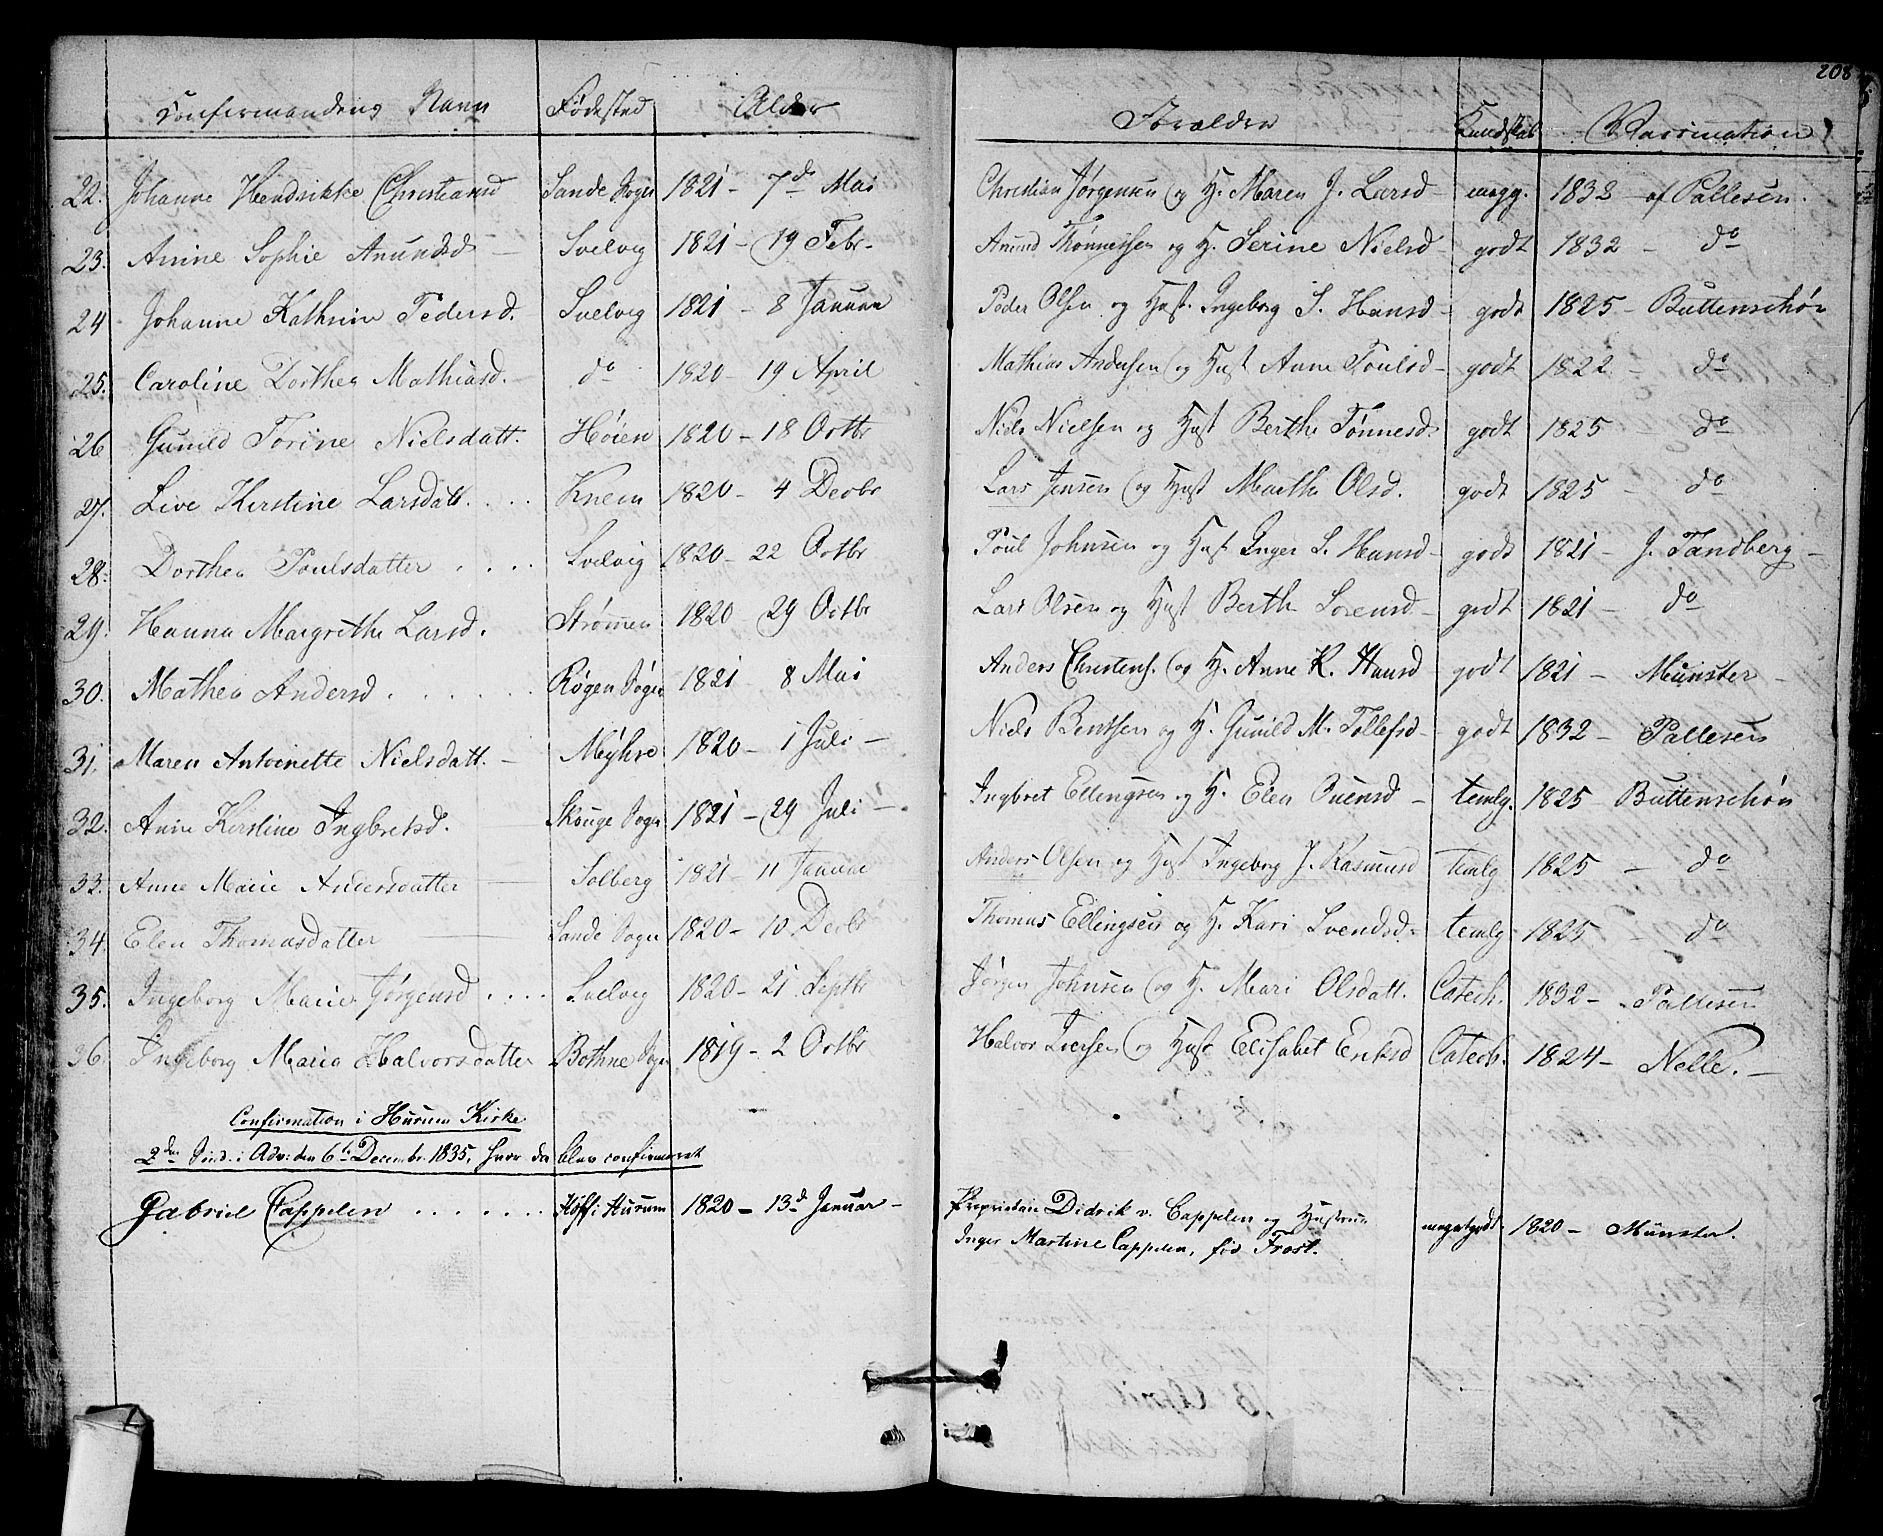 208
Confirmandens Navn Fødested Alder Forældre Kundskab Vaccination
22. Johanne Hendrikke Christiansd Sande Sogn 1821 - 7de Mai Christian Jørgensen og H. Maren J. Larsd - megg. 1832 - af Pallesen.
23. Anne Sophie Anundsd - Svelvig 1821 - 19 Febr. Anund Thønnessen og H. Serine Nielsd godt 1832 - do
24 Johanne Kathrine Pedersd. Svelvig 1821 - 8 Januar Peder Olsen og Hust. Ingeborg S. Hansd - godt 1825 - Buttenschøn
25. Caroline Dorthea Mathiasd. - do 1820 - 19 April Mathias Andersen og Hust Anne Poulsd - godt 1822 - do
26 Gunild Torine Nielsdatt. Høien 1820 - 18 Octbr Niels Nielsen og Hust Berthe Tønnesd. godt 1825 do
27. Live Kerstine Larsdatt. . . . Knem 1820 - 4 Decbr Lars Jensen og Hust Marthe Olsd. godt 1825 - do
28. Dorthea Poulsdatter . . . . Svelvig 1820 - 22 Octbr Poul Johnsen og Hust Inger L. Hansd - godt 1821 - J. Tandberg -
29. Hanna Margrethe Larsd. Strømmen 1820 29 Octbr Lars Olsen og Hust Berthe Sørensd - godt 1821 - do
30. Mathea Andersd . . . . . Røgen Sogn 1821 8 Mai Anders Christens. og H. Anne K. Hansd godt 1821 - Münster -
31. Maren Antoinette Nielsdatt. - Mÿhre 1820 - 1 Juli - Niels Bentsen og H. Gunild M. Tollefsd - godt 1832 - Pallesen
32. Anne Kerstine Ingbretsd. Skouge Sogn 1821 - 29 Juli - Ingbret Ellingsen og H. Elen Ouensd - temlg. 1825 Buttenschøn
33. Anne Marie Andersdatter Solberg 1821 - 11 Januar Anders Olsen og Hust Ingeborg J. Rasmusd temlg 1825 - do
34. Elen Thomasdatter Sande Sogn 1820 - 10 Decbr Thomas Ellingsen og H. Kari Svendsd - temlg 1825 - do
35. Ingeborg Marie Jørgensd . . . . Svelvig 1820 - 21 Septbr Jørgen Johnsen og H. Mari Olsdatt. Catech. 1832 - Pallesen
36. Ingeborg Maria Halvorsdatter Bothne Sogn 1819 - 2 Octbr Halvor Iversen og Hust Elisabet Eriksd Catech. 1824 - Nelle. -
Confirmation i Hurum Kirke
2den Sønd. i Adv: den 6te Decembr. 1835, hvor da blev confirmeret
Gabriel Cappelen . . . . . . . Hoff i Hurum 1820 - 13de Januar - Proprietair Didrik v. Cappelen og Hustrue meget godt 1820 - Münster.
Inger Martine Cappelen, fød Frost.